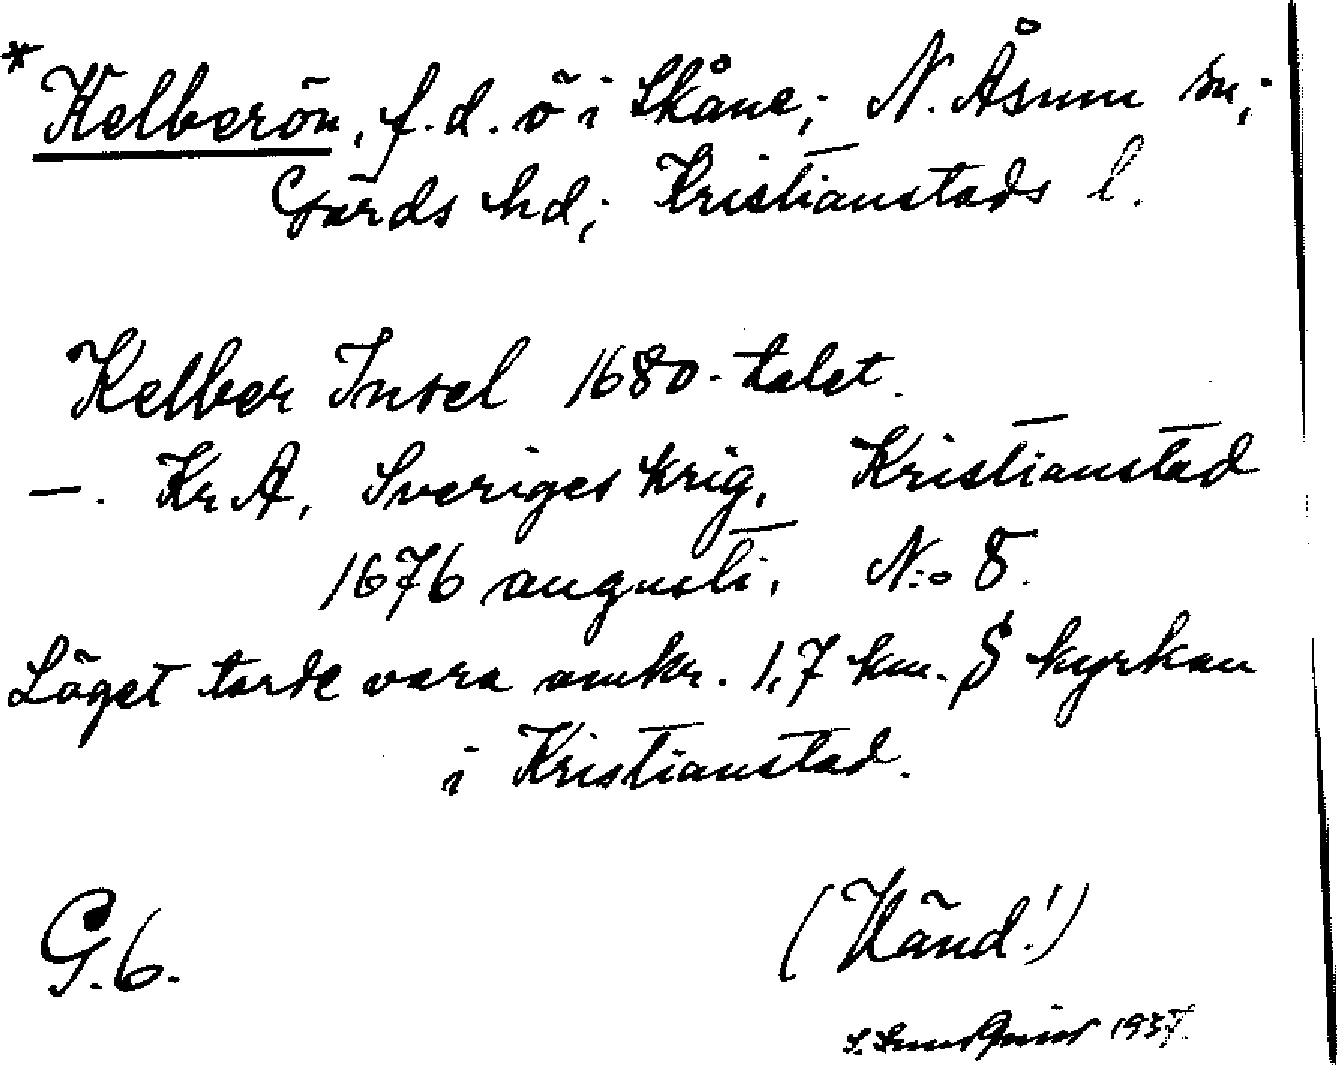 * Kelberön, f.d. ö i Skåne; N. Åsum sn;
Gärds hd; Kristianstads l.
Kelber Insel 1680-talet.
—. Kr A, Sveriges krig, Kristianstad
1676 augusti. N:o 8.
Läget torde vara omkr. 1,7 km. S kyrkan
i Kristianstad.
G.6.
(Vänd!)
1937.